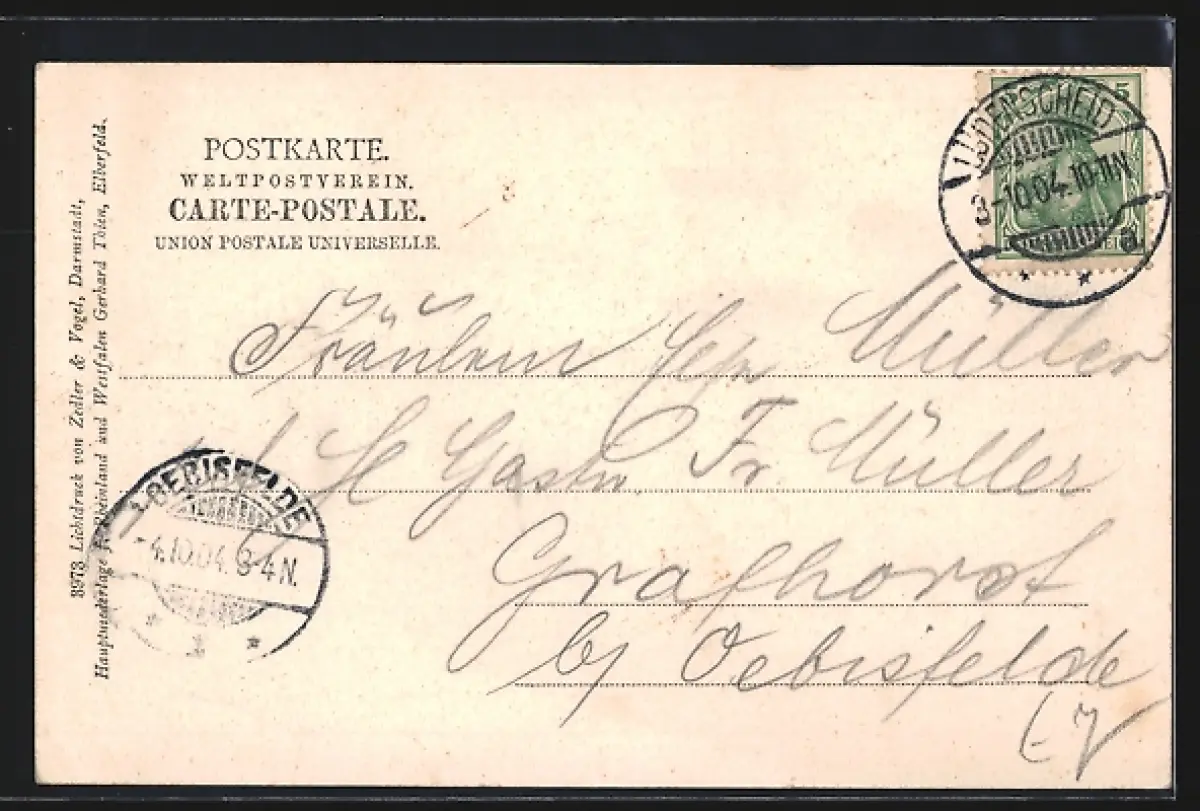 POSTKARTE.
WELTPOSTVEREIN.
CARTE-POSTALE.
UNION POSTALE UNIVERSELLE.
3973 Lichtdruck von Zedler & Vogel, Darmstadt,
Hauptniederlage f. Rheinland und Westfalen Gerhard Thien, Elberfeld.
5
LÜDENSCHEID
3-10.04.10-11N.
a
Fräulein Müller
Fr Müller
Grafhorst
by Oebisfelde
OEBISFELDE
-4.10.04.3-4N.